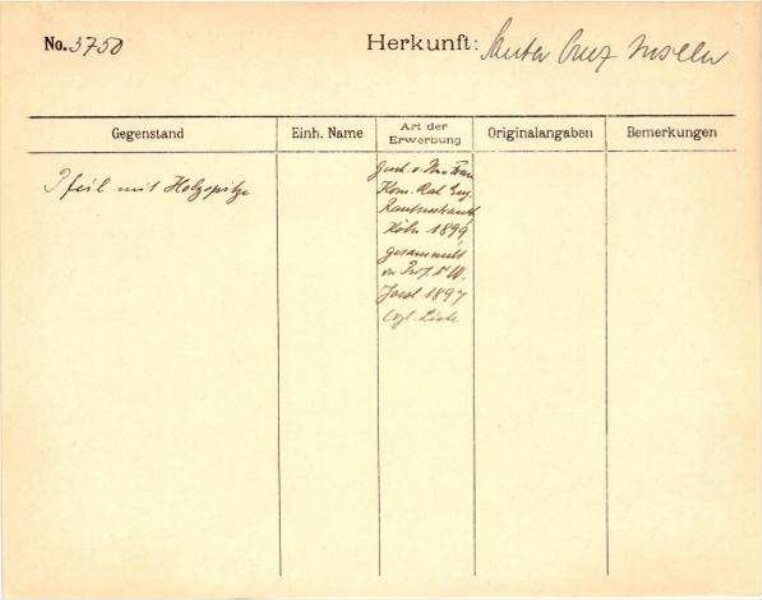 No. 3750
Herkunft: Santa Cruz Inseln
Gegenstand
Einh. Name
Art der Erwerbung
Originalangaben
Bemerkungen
Pfeil mit Holzspitze
Gesch. v. Frau
Kom. Rat Eug.
Rautenstrauch
Köln 1899,
gesammelt
v. Prof. Dr W.
Joest 1897
(vgl. Liste